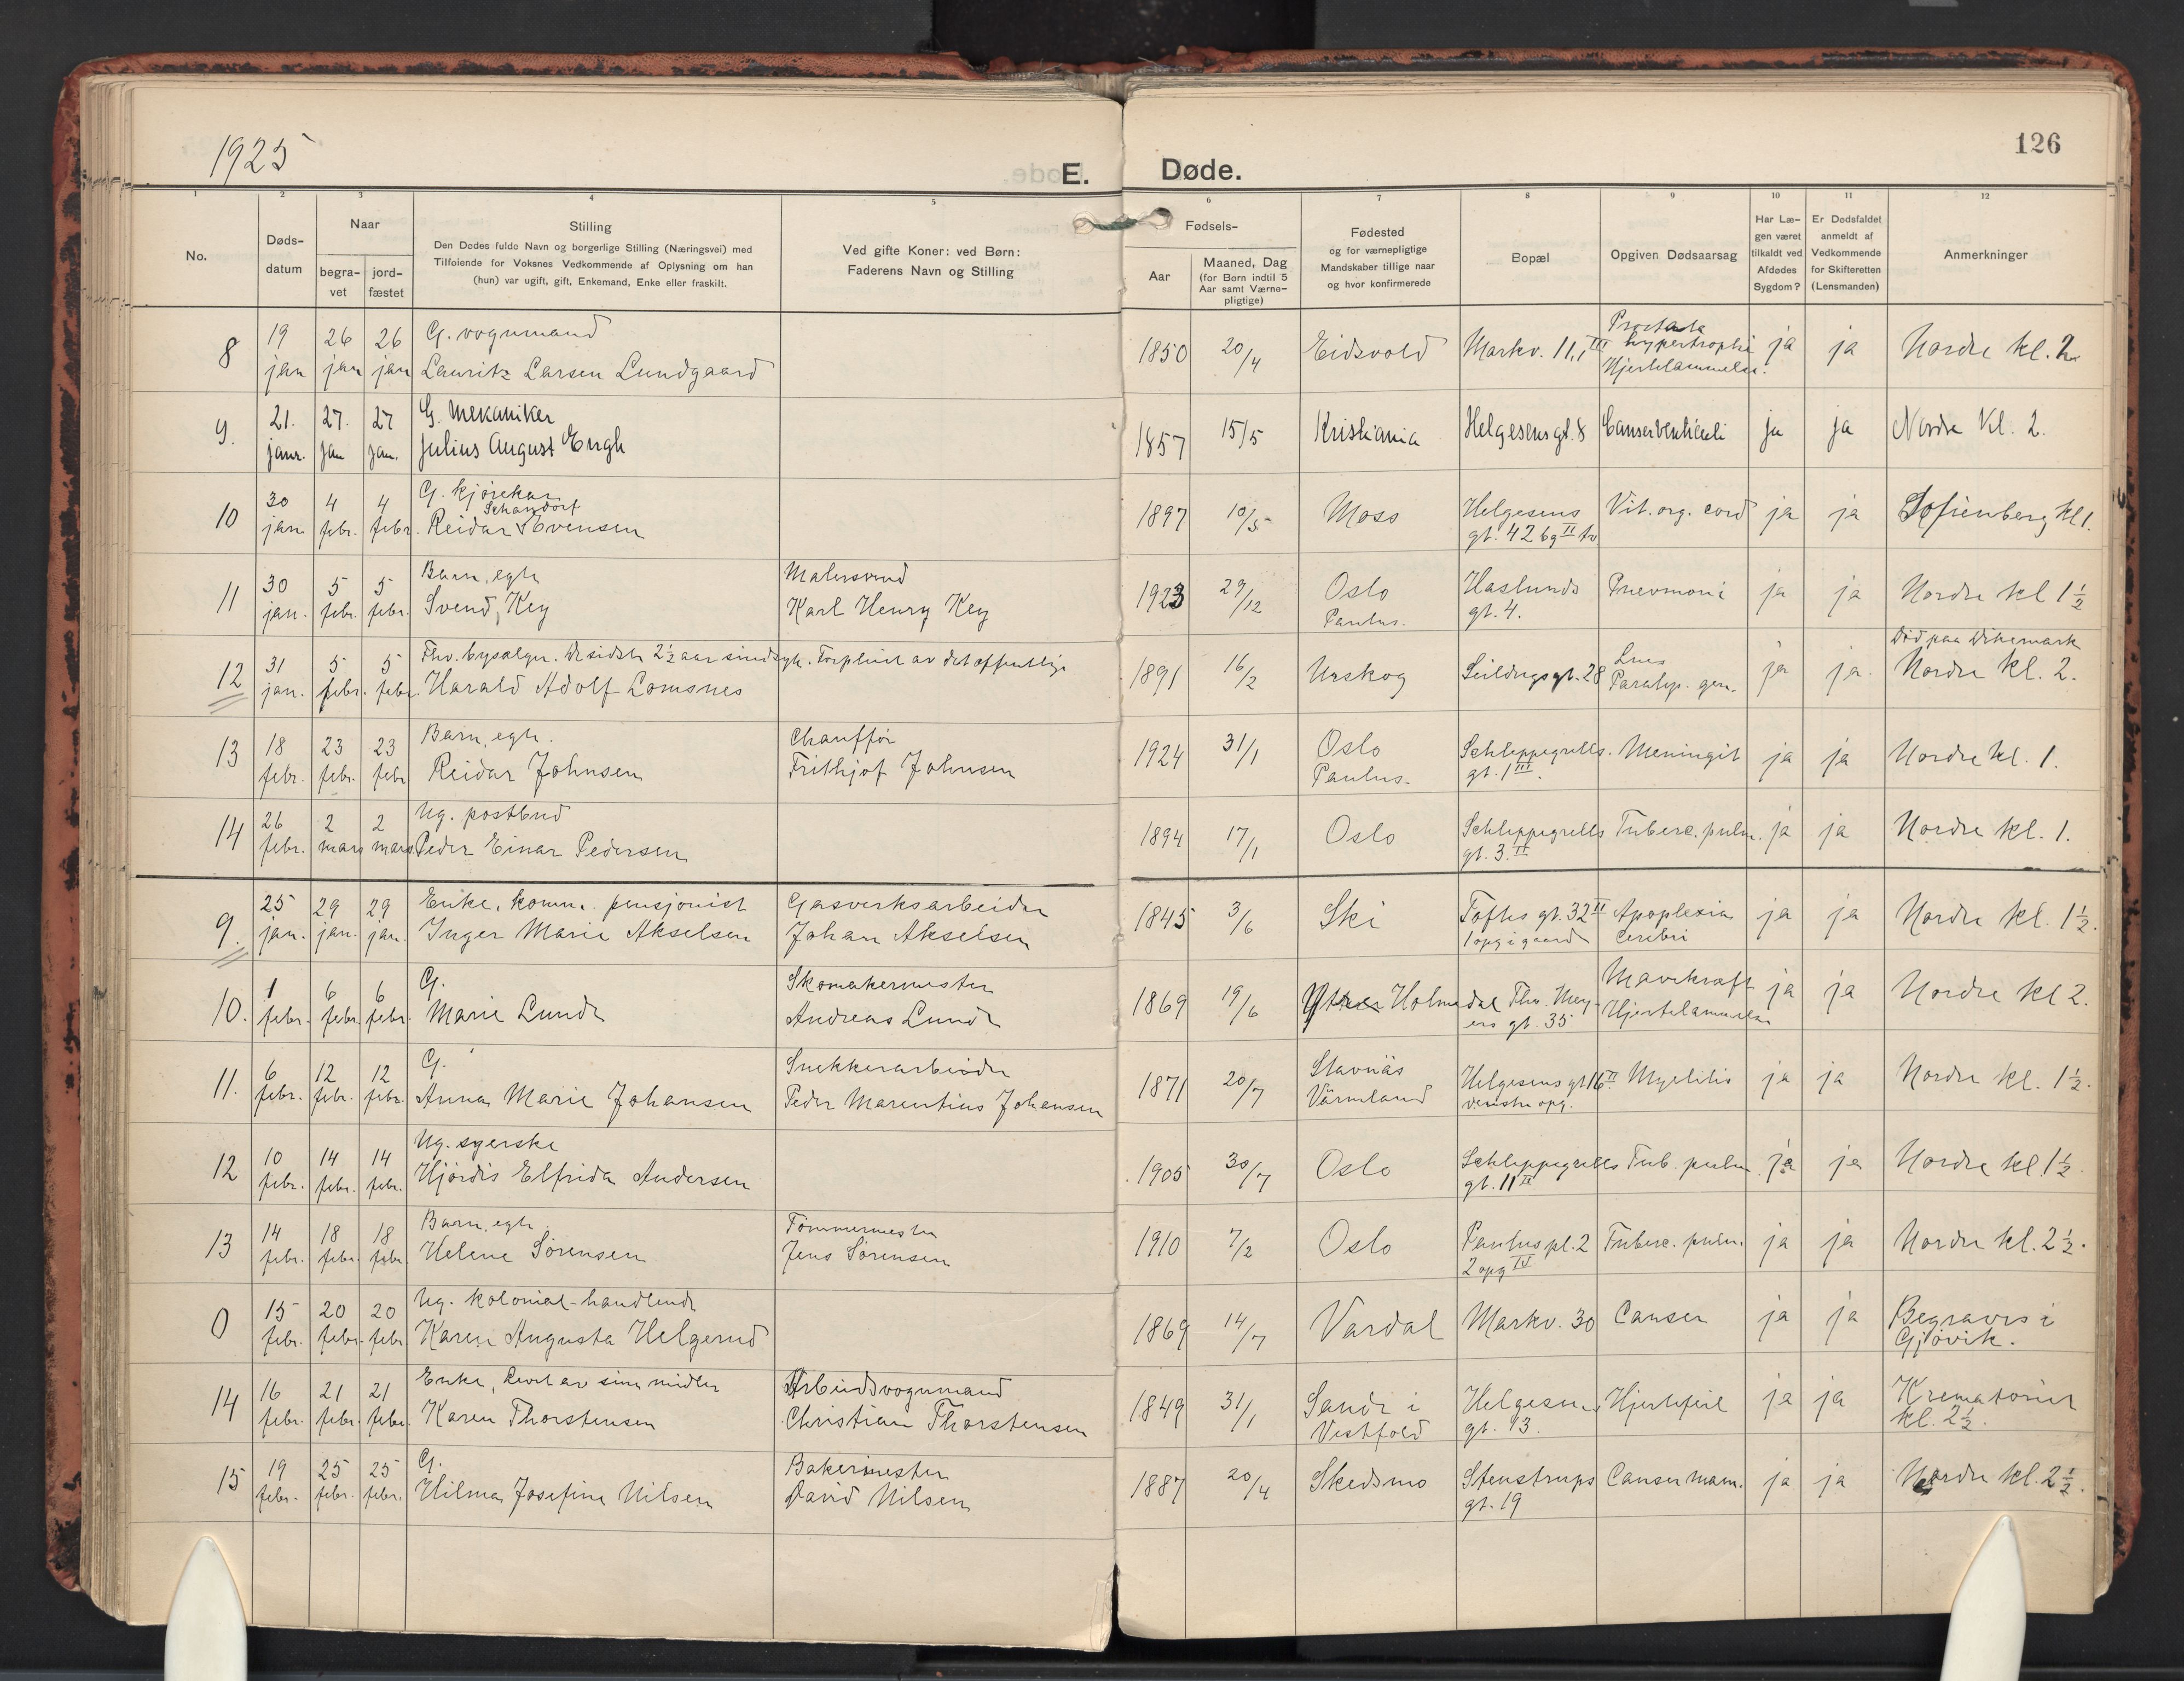 1925
E. Døde.
126
1 2 3 4 5 6 7 8 9 10 11 12
No.
Døds-
datum
Naar
begra-
vet
jord-
fæstet
Stilling
Den Dødes fulde Navn og borgerlige Stilling (Næringsvei) med
Tilføiende for Voksnes Vedkommende af Oplysning om han
(hun) var ugift, gift, Enkemand, Enke eller fraskilt.
Ved gifte Koner: ved Børn:
Faderens Navn og Stilling
Fødsels-
Aar
Maaned, Dag
(for Børn indtil 5
Aar samt Værne-
pligtige)
Fødested
og for værnepligtige
Mandskaber tillige naar
og hvor konfirmerede
Bopæl
Opgiven Dødsaarsag
Har Læ-
gen været
tilkaldt ved
Afdødes
Sygdom?
Er Dødsfaldet
anmeldt af
Vedkommende
for Skifteretten
(Lensmanden)
Anmerkninger
8 19 jan 26 jan 26 jan G. vognmand
Lauritz Larsen Lundgaard
1850 20/4 Eidsvold Markv. 11, III Prostata
hypertrophi
Hjertelammelse. ja ja Nordre kl. 2
9. 21. janr. 27. jan 27 jan. G. Mekaniker
Julius August Engh
1857 15/5 Kristiania Helgesensgt. 8 Canser ventriculi ja ja Nordre Kl. 2.
10 30 jan 4 febr. 4 febr. G. kjørekar
Schandorf
Reidar Evensen
1897 10/5 Moss Helgesens
gt. 42 bg II tv Vit. org. cord ja ja Sofienberg kl 1.
11 30 jan. 5 febr. 5 febr. Barn, egte
Svend, Key
Malersvend
Karl Henry Key
1923 29/12 Oslo
Paulus. Haslunds
gt. 4. Pnevmoni ja ja Nordre kl 1 1/2
12 31 jan. 5 febr. 5 febr. Fhv. bysælger. De sidste 2 1/2 aar sindsyk. Forpleiet av det offentlige
Harald Adolf Lomsnes
1891 16/2 Urskog Seildugsgt. 28 Lues
Paralyp. gen. ja ja Død paa Dikemark
Nordre kl. 2.
13 18 febr. 23 febr. 23 febr Barn, egte.
Reidar Johnsen
Chauffør
Frithjof Johnsen
1924 31/1 Oslo
Paulus. Schleppegrells.
gt. 1 III. Meningit ja ja Nordre kl. 1.
14 26 febr. 2 mars 2 mars Ug. postbud
Peder Einar Pedersen
1894 17/1 Oslo Schleppegrells
gt. 3. II Tuberc. pulm. ja ja Nordre kl. 1.
9. 25 jan. 29 jan. 29 jan. Enke, komm. pensjonist
Inger Marie Akselsen
Gasverksarbeider
Johan Akselsen
1845 3/6 Ski Toftes gt. 32 II
1 opg i gaard Apoplexia
Cerebri ja ja Nordre kl. 1 1/2.
10. 1 febr. 6 febr. 6 febr. G.
Marie Lunde
Skomakermester
Andreas Lunde
1869 19/6 Ytre Holmedal Thv. Mey-
ers gt. 35 Mavekræft
Hjertelammelse ja ja Nordre kl 2.
11. 6 febr. 12 febr. 12 febr. G.
Anna Marie Johansen
Snekkerarbeider
Peder Marentius Johansen
1871 20/7 Stavnäs
Värmland Helgesens gt 16 II
venstre opg. Myelitis ja ja Nordre kl. 1 1/2.
12 10 febr. 14 febr. 14 febr. Ug. syerske
Hjørdis Elfrida Andersen
1905 30/7 Oslo Schleppegrells
gt. 11 II Tub. pulm ja ja Nordre kl. 1 1/2.
13 14 febr. 18 febr. 18 febr. Barn, egte
Helene Sørensen
Tømmermester
Jens Sørensen
1910 7/2 Oslo Paulus pl. 2
2 opg IV Tuberc. pulm. ja ja Nordre kl. 2 1/2.
0 15 febr. 20 febr. 20 febr Ug. kolonial-handlende
Karen Augusta Helgerud
1869 14/7 Vardal Markv. 30 Canser ja ja Begraves i
Gjøvik.
14 16 febr. 21 febr. 21 febr. Enke, Levet av sine midler
Karen Thorstensen
Arbeidsvognmand
Christian Thorstensen
1849 31/1 Sande i
Vestfold Helgesens
gt. 13. Hjertefeil ja ja Krematoriet
kl. 2 1/2.
15 19 febr. 25 febr. 25 febr. G.
Hilma Josefine Nilsen
Bakermester
David Nilsen
1887 20/4 Skedsmo Stenstrups
gt. 19 Canser mam. ja ja Nordre kl. 2 1/2.